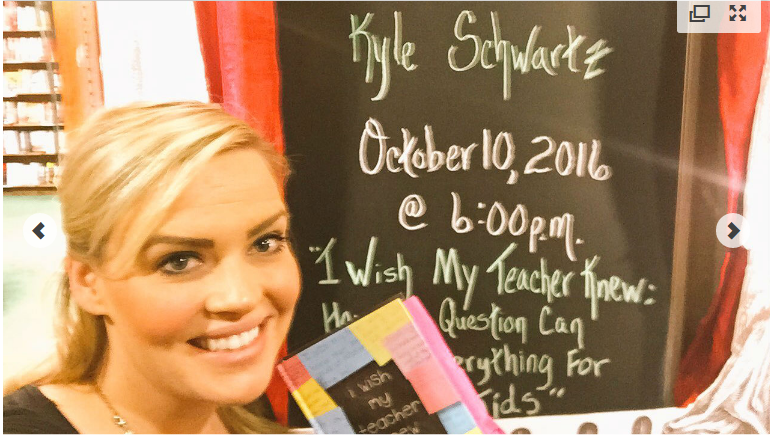 Kyle Schwartz
October 10, 2016
@ 6:00p.m.
"I Wish My Teacher Knew:
Question Can
erything For
ids"
I wish
my
teacher